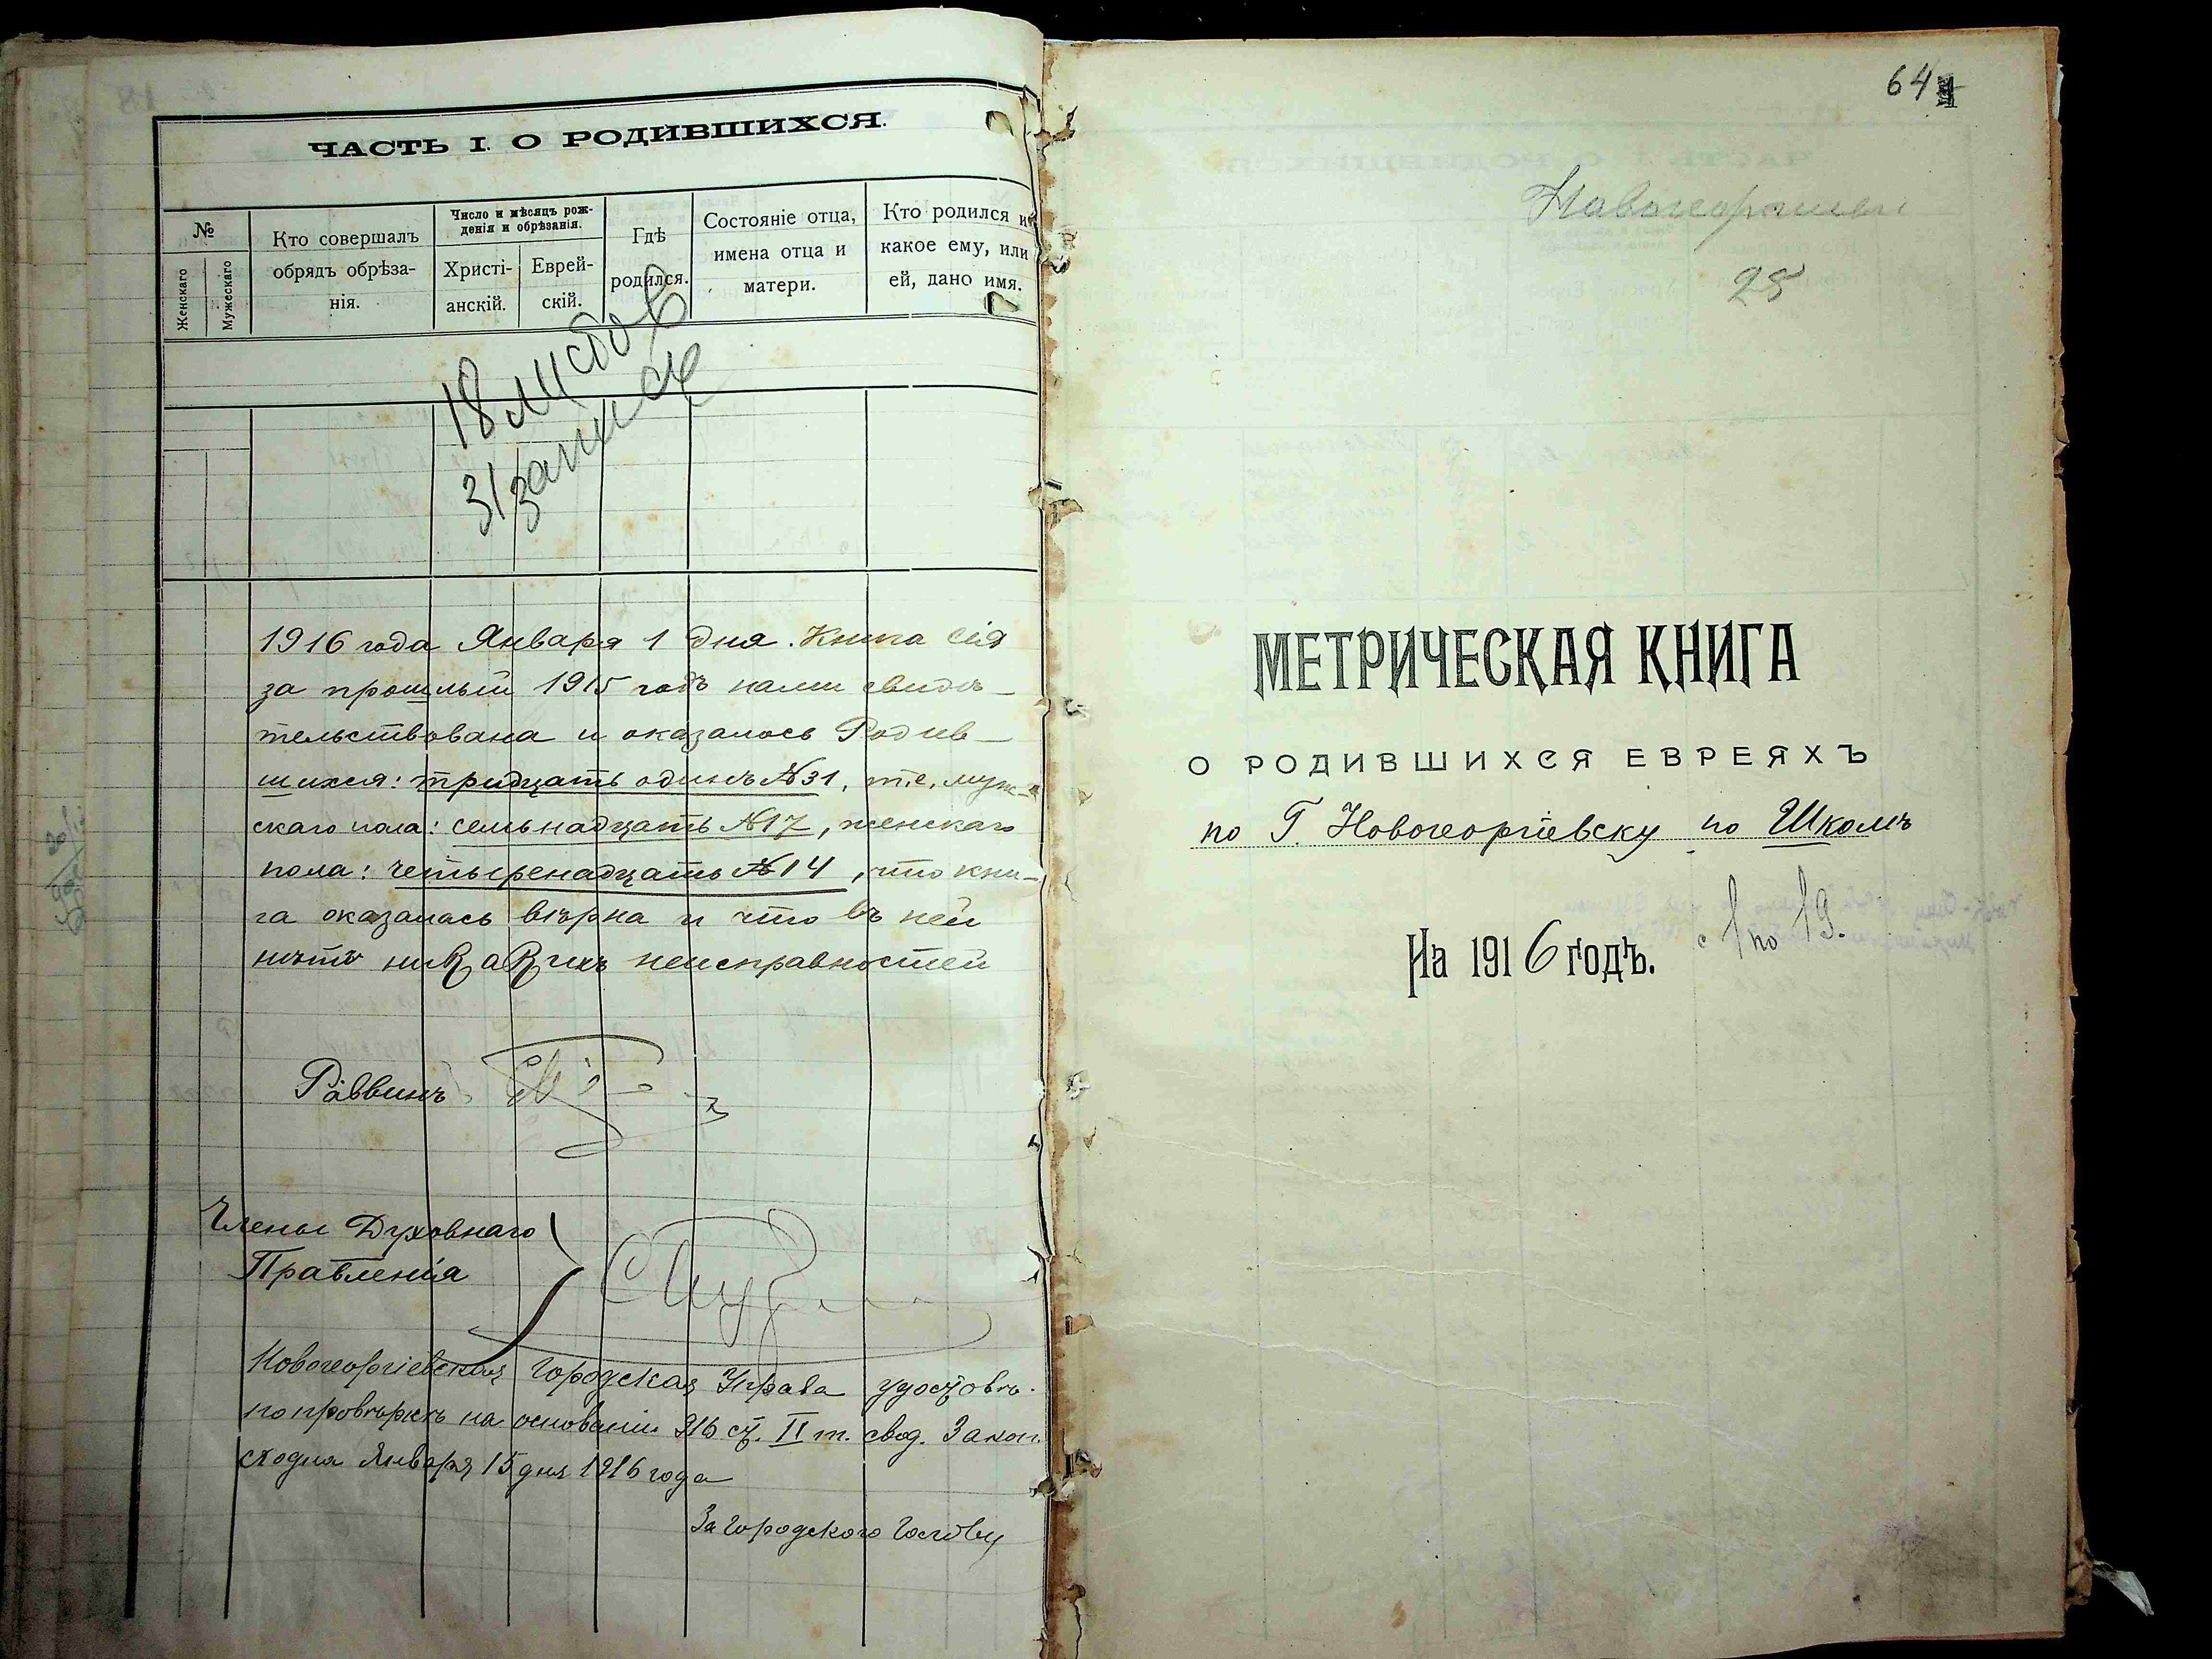 ЧАСТЬ I. О РОДИВШИХСЯ.
№
Женскаго
Мужескаго
Кто совершалъ
обрядъ обрѣза-
нія.
Число и мѣсяцъ рож-
денія и обрѣзанія.
Христі-
анскій.
Еврей-
скій.
Гдѣ
родился.
Состояніе отца,
имена отца и
матери.
Кто родился и
какое ему, или
ей, дано имя.
18 листов
31 записе
1916 года Января 1 дня. Книга сія
за прошлый 1915 годъ нами свидѣ-
тельствована и оказалось Родив-
шихся: тридцать одинъ №31, т.е. муж-
скаго пола: семьнадцать №17, женскаго
пола: четыренадцать №14, что кни-
га оказалась вѣрна и что въ ней
нѣтъ никакихъ неисправностей
Раввинъ
Члены Духовнаго
Правленія
Новогеоргіевская Городская Управа удостовѣ.
по провѣркѣ на основаніи 916 ст. II т. свод. Закон.
Января 15 дня 1916 года
За Городского Голову
64
1
Новогеоргиевс
25
МЕТРИЧЕСКАЯ КНИГА
О РОДИВШИХСЯ ЕВРЕЯХЪ
по Г. Новогеоргіевску по Школѣ
На 1916 годъ. с 1 по 19.